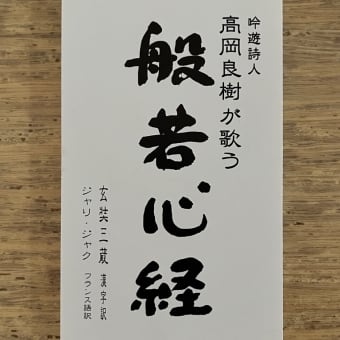 吟遊詩人
高岡良樹が歌う
般若心経
玄奘三蔵 漢字訳
ジャリ・ジャク フランス語訳